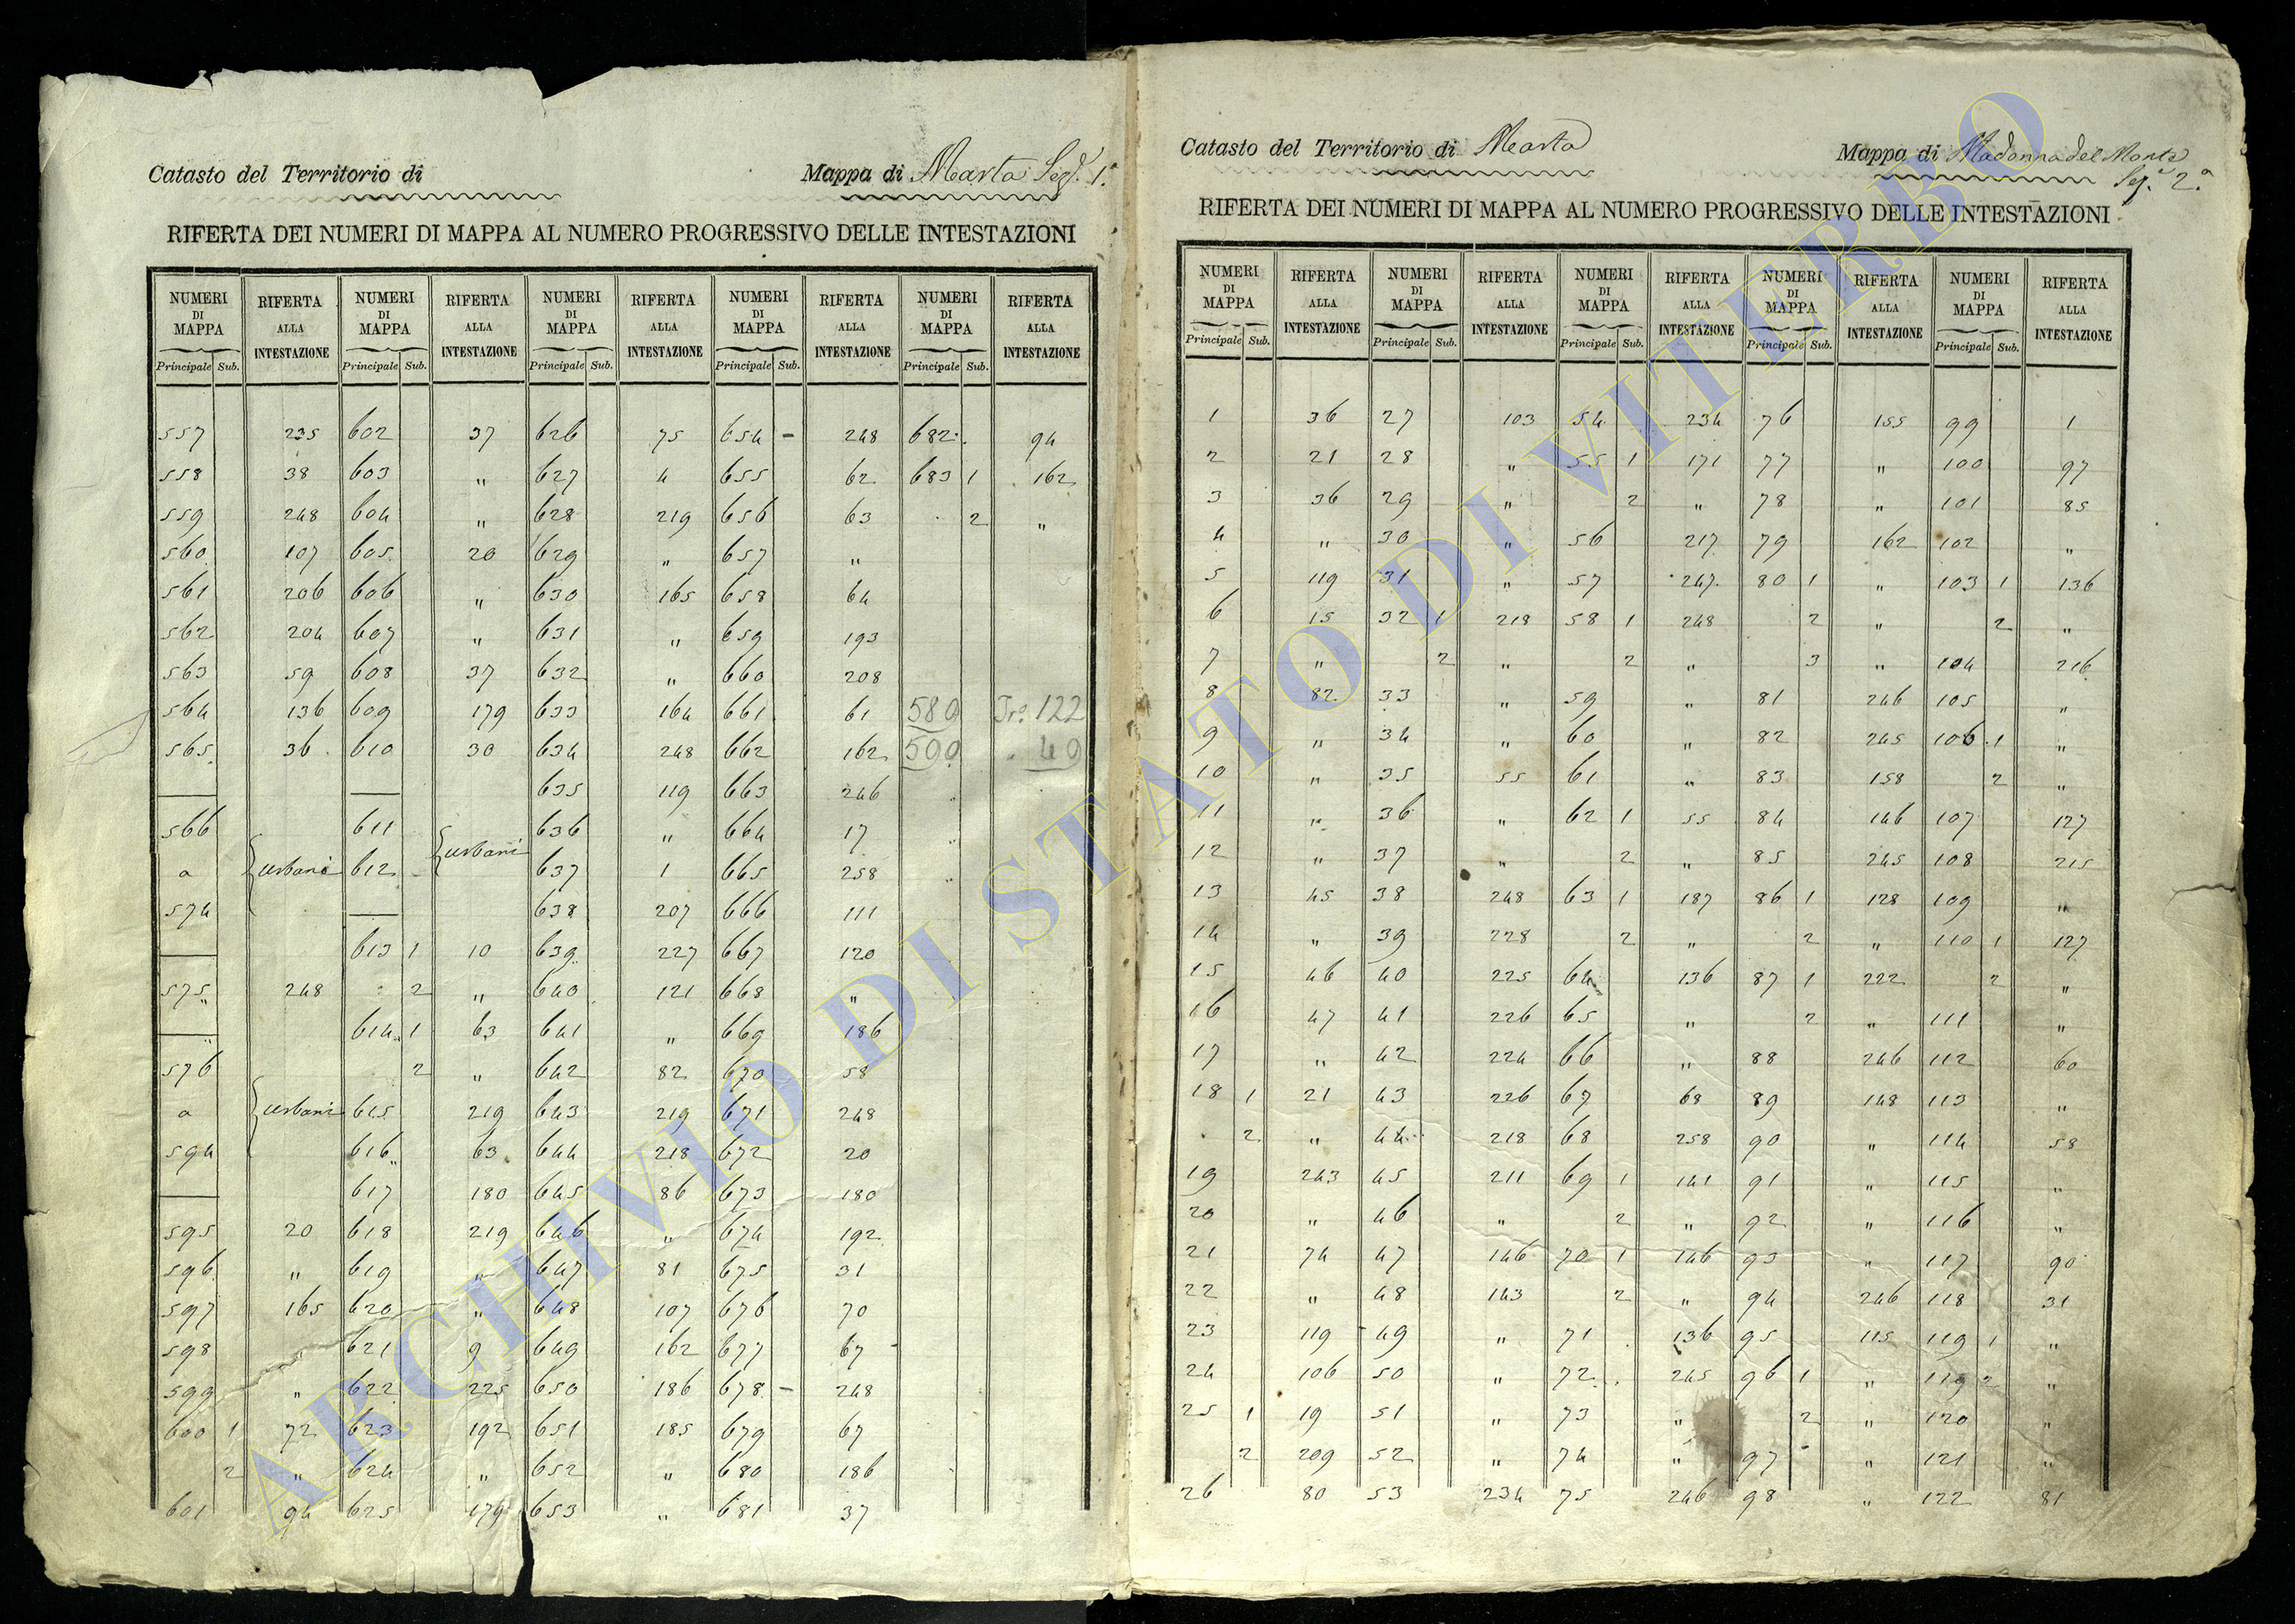 Catasto del Territorio di Mappa di Marta Sez. 1.a
RIFERTA DEI NUMERI DI MAPPA AL NUMERO PROGRESSIVO DELLE INTESTAZIONI
NUMERI DI MAPPA RIFERTA ALLA INTESTAZIONE NUMERI DI MAPPA RIFERTA ALLA INTESTAZIONE NUMERI DI MAPPA RIFERTA ALLA INTESTAZIONE NUMERI DI MAPPA RIFERTA ALLA INTESTAZIONE NUMERI DI MAPPA RIFERTA ALLA INTESTAZIONE
Principale Sub. Principale Sub. Principale Sub. Principale Sub. Principale Sub.
557 235 602 37 626 75 654 - 248 682 94
558 38 603 " 627 4 655 62 683 1 162
559 248 604 " 628 219 656 63 2 "
560 107 605 20 629 " 657 "
561 206 606 " 630 165 658 64
562 204 607 " 631 " 659 193
563 59 608 37 632 " 660 208
564 136 609 179 633 164 661 61 589 122
565 36 610 30 634 248 662 162 590 49
635 119 663 246
566 611 636 " 664 17
a urbani 612 urbani 637 1 665 258
574 638 207 666 111
613 1 10 639 227 667 120
575 248 2 " 640 121 668 "
614 1 63 641 " 669 186
576 2 " 642 82 670 58
a urbani 615 219 643 219 671 248
594 616 63 644 218 672 20
617 180 645 86 673 180
595 20 618 219 646 " 674 192
596 " 619 " 647 81 675 31
597 165 620 " 648 107 676 70
598 621 9 649 162 677 67
599 " 622 225 650 186 678 - 248
600 1 72 623 192 651 185 679 67
2 " 624 " 652 " 680 186
601 94 625 179 653 " 681 37
Catasto del Territorio di Marta Mappa di Madonna del Monte
Sez. 2.a
RIFERTA DEI NUMERI DI MAPPA AL NUMERO PROGRESSIVO DELLE INTESTAZIONI
NUMERI DI MAPPA RIFERTA ALLA INTESTAZIONE NUMERI DI MAPPA RIFERTA ALLA INTESTAZIONE NUMERI DI MAPPA RIFERTA ALLA INTESTAZIONE NUMERI DI MAPPA RIFERTA ALLA INTESTAZIONE NUMERI DI MAPPA RIFERTA ALLA INTESTAZIONE
Principale Sub. Principale Sub. Principale Sub. Principale Sub. Principale Sub.
1 36 27 103 54 234 76 155 99 1
2 21 28 " 55 1 171 77 " 100 97
3 36 29 " 2 " 78 " 101 85
4 " 30 " 56 217 79 162 102 "
5 119 31 " 57 247 80 1 " 103 1 136
6 15 32 1 218 58 1 248 2 " 2 "
7 " 2 " 2 " 3 " 104 216
8 82 33 " 59 " 81 246 105 "
9 " 34 " 60 " 82 245 106 1 "
10 " 35 55 61 " 83 158 2 "
11 " 36 " 62 1 55 84 146 107 127
12 " 37 " 2 " 85 245 108 215
13 45 38 248 63 1 187 86 1 128 109 "
14 " 39 228 2 " 2 " 110 1 127
15 46 40 225 64 136 87 1 222 2 "
16 47 41 226 65 " 2 " 111 "
17 " 42 224 66 " 88 246 112 60
18 1 21 43 226 67 68 89 148 113 "
2 " 44 218 68 258 90 " 114 58
19 243 45 211 69 1 141 91 " 115 "
20 " 46 " 2 " 92 " 116 "
21 74 47 146 70 1 146 93 " 117 90
22 " 48 143 2 " 94 246 118 31
23 119 49 " 71 136 95 115 119 1 "
24 106 50 " 72 245 96 1 " 119 2 "
25 1 19 51 " 73 " 2 " 120 "
2 209 52 " 74 " 97 " 121 "
26 80 53 234 75 246 98 " 122 81
ARCHIVIO DI STATO DI VITERBO